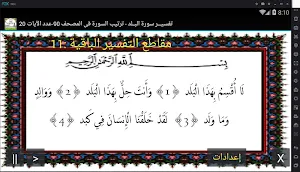 8:10
تفسير سورة البلد - ترتيب السورة في المصحف 90-عدد الآيات 20
مقاطع التفسير الباقية: 11
بسم الله الرحمن الرحيم
لَا أُقْسِمُ بِهَذَا الْبَلَدِ ﴿1﴾ وَأَنتَ حِلٌّ بِهَذَا الْبَلَدِ ﴿2﴾ وَوَالِدٍ
وَمَا وَلَدَ ﴿3﴾ لَقَدْ خَلَقْنَا الْإِنسَانَ فِي كَبَدٍ ﴿4﴾
|| > إعدادات X